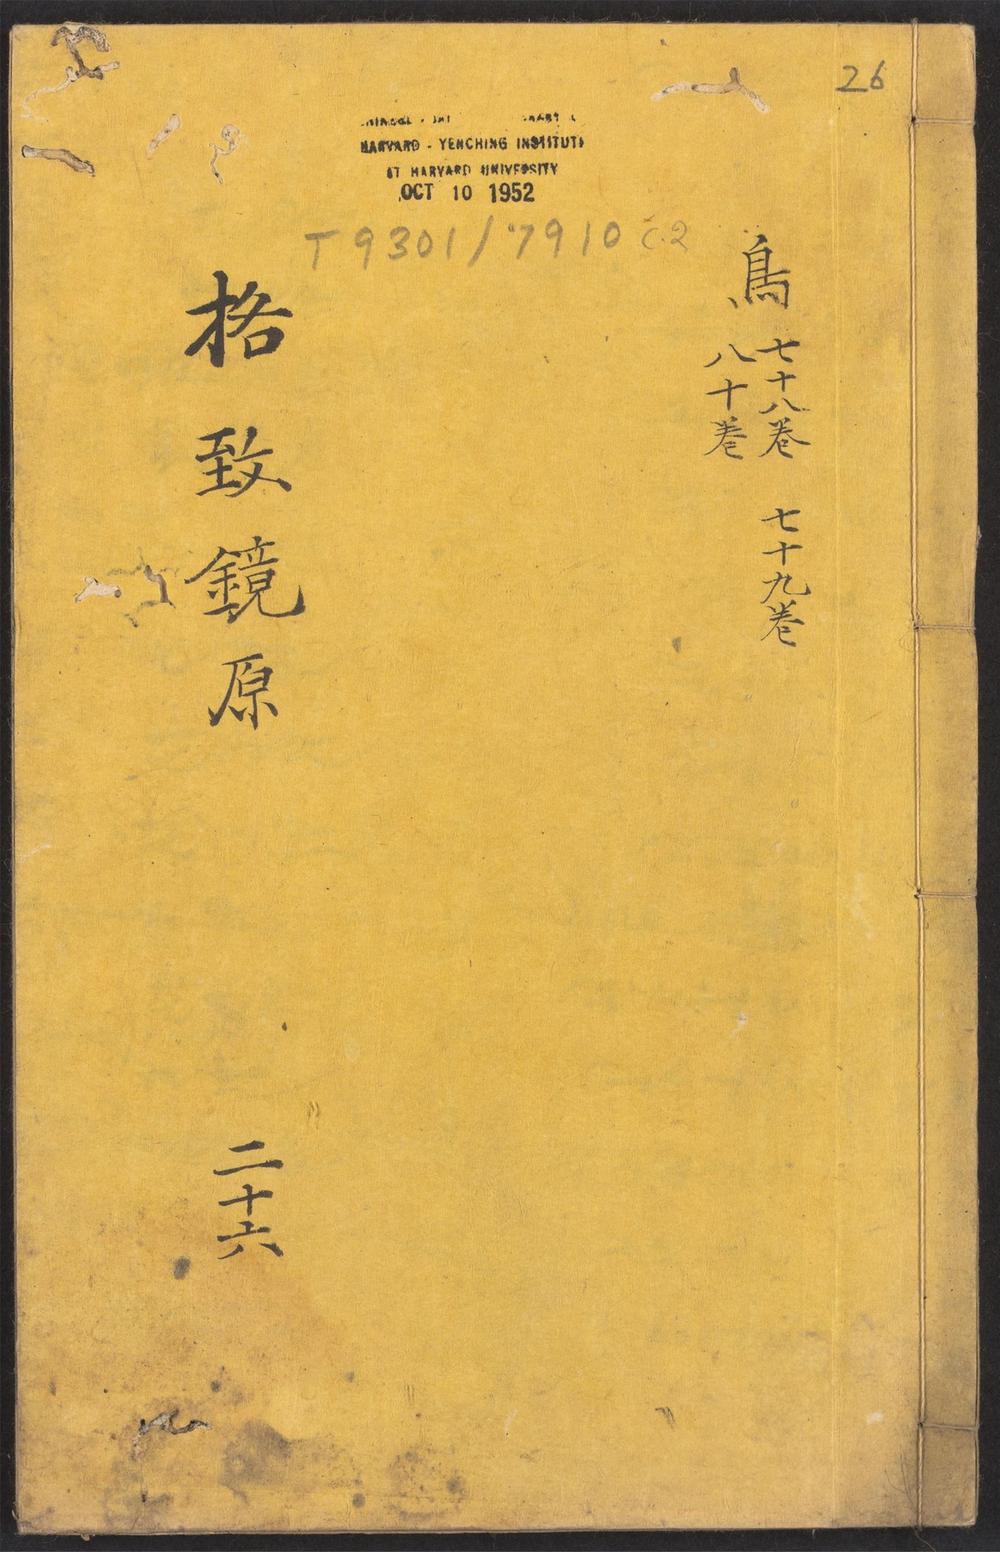 26
HARVARD - YENCHING INSTITUTE
AT HARVARD UNIVERSITY
OCT 10 1952
T 9301/7910 c.2
鳥
七十八卷 七十九卷
八十卷
格致鏡原
二十六